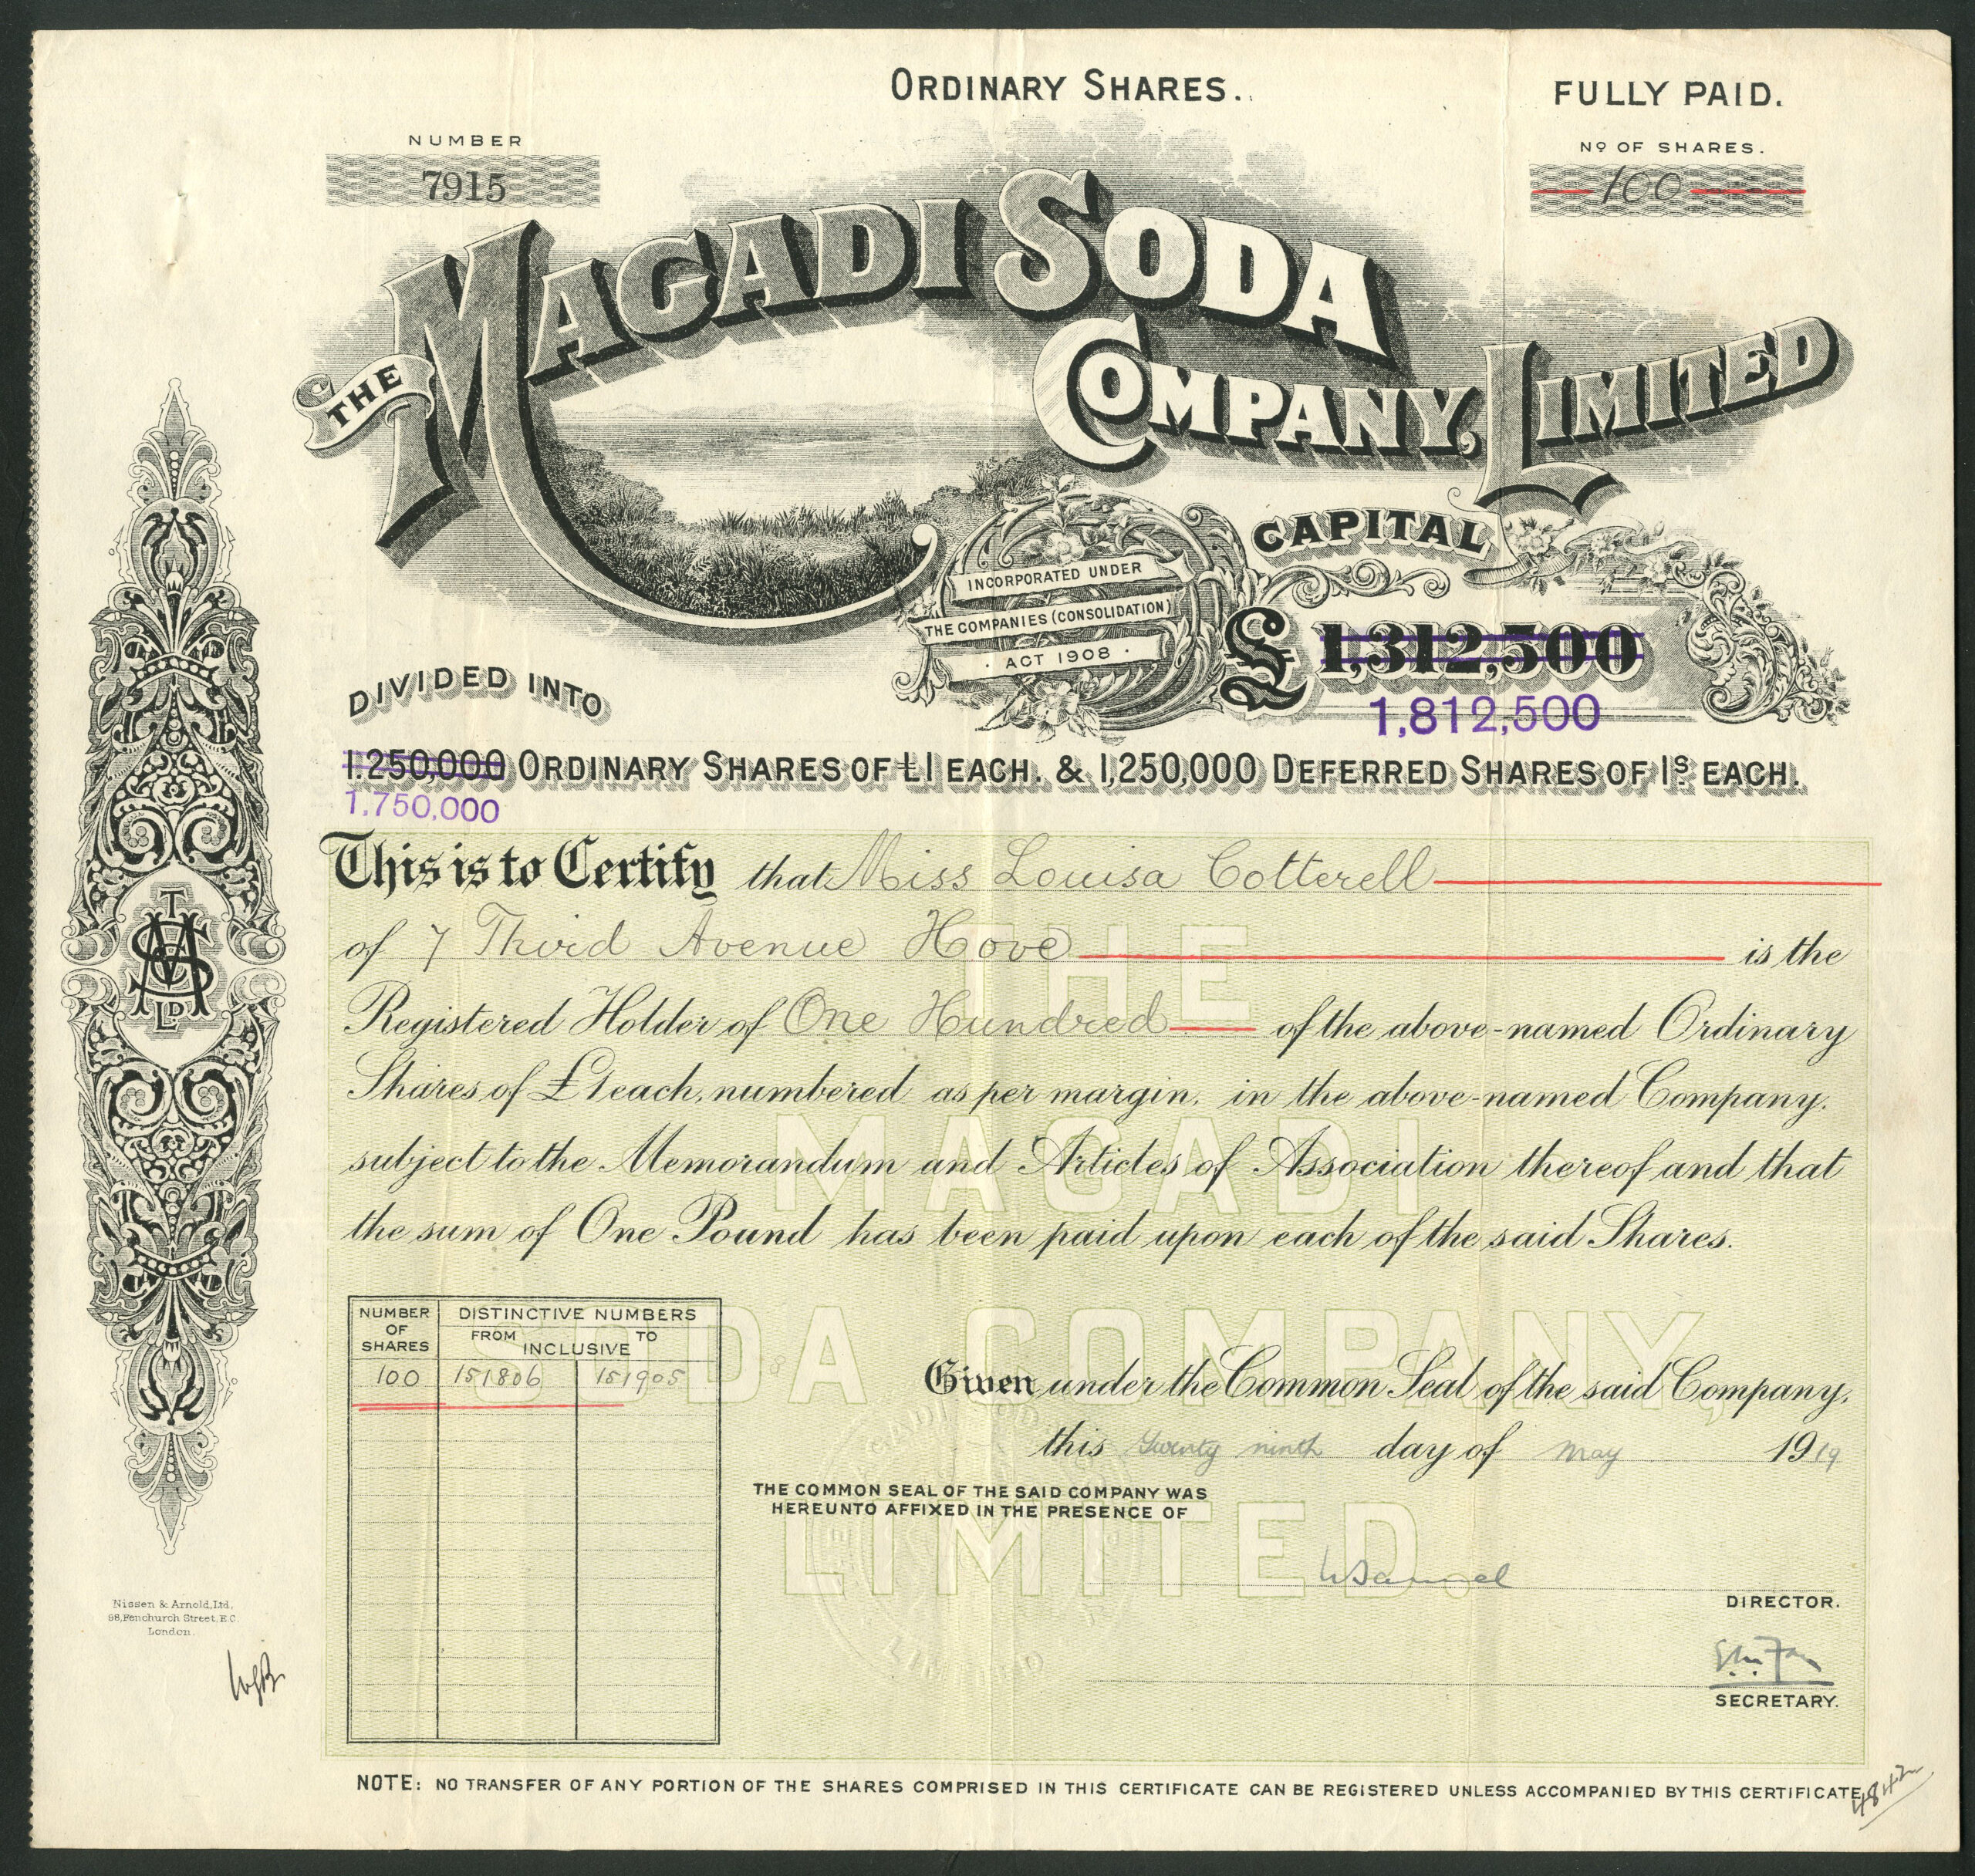 ORDINARY SHARES.
FULLY PAID.
NUMBER
7915
No OF SHARES.
100
THE MAGADI SODA
COMPANY, LIMITED
INCORPORATED UNDER
THE COMPANIES (CONSOLIDATION)
· ACT 1908 ·
CAPITAL
£ 1,312,500
1,812,500
DIVIDED INTO
1.250.000 ORDINARY SHARES OF £1 EACH. & 1,250,000 DEFERRED SHARES OF 1s. EACH.
1,750,000
This is to Certify that Miss Louisa Cotterell
of 7 Third Avenue Hove is the
Registered Holder of One Hundred of the above-named Ordinary
Shares of £1 each, numbered as per margin, in the above-named Company,
subject to the Memorandum and Articles of Association thereof and that
the sum of One Pound has been paid upon each of the said Shares.
THE
MAGADI
SODA COMPANY,
LIMITED.
NUMBER OF SHARES
DISTINCTIVE NUMBERS
FROM INCLUSIVE TO
100 151806 151905
Given under the Common Seal of the said Company,
this Twenty ninth day of May 1919
THE COMMON SEAL OF THE SAID COMPANY WAS
HEREUNTO AFFIXED IN THE PRESENCE OF
DIRECTOR.
SECRETARY.
Nissen & Arnold, Ltd,
68, Fenchurch Street, E.C.
London.
NOTE: NO TRANSFER OF ANY PORTION OF THE SHARES COMPRISED IN THIS CERTIFICATE CAN BE REGISTERED UNLESS ACCOMPANIED BY THIS CERTIFICATE